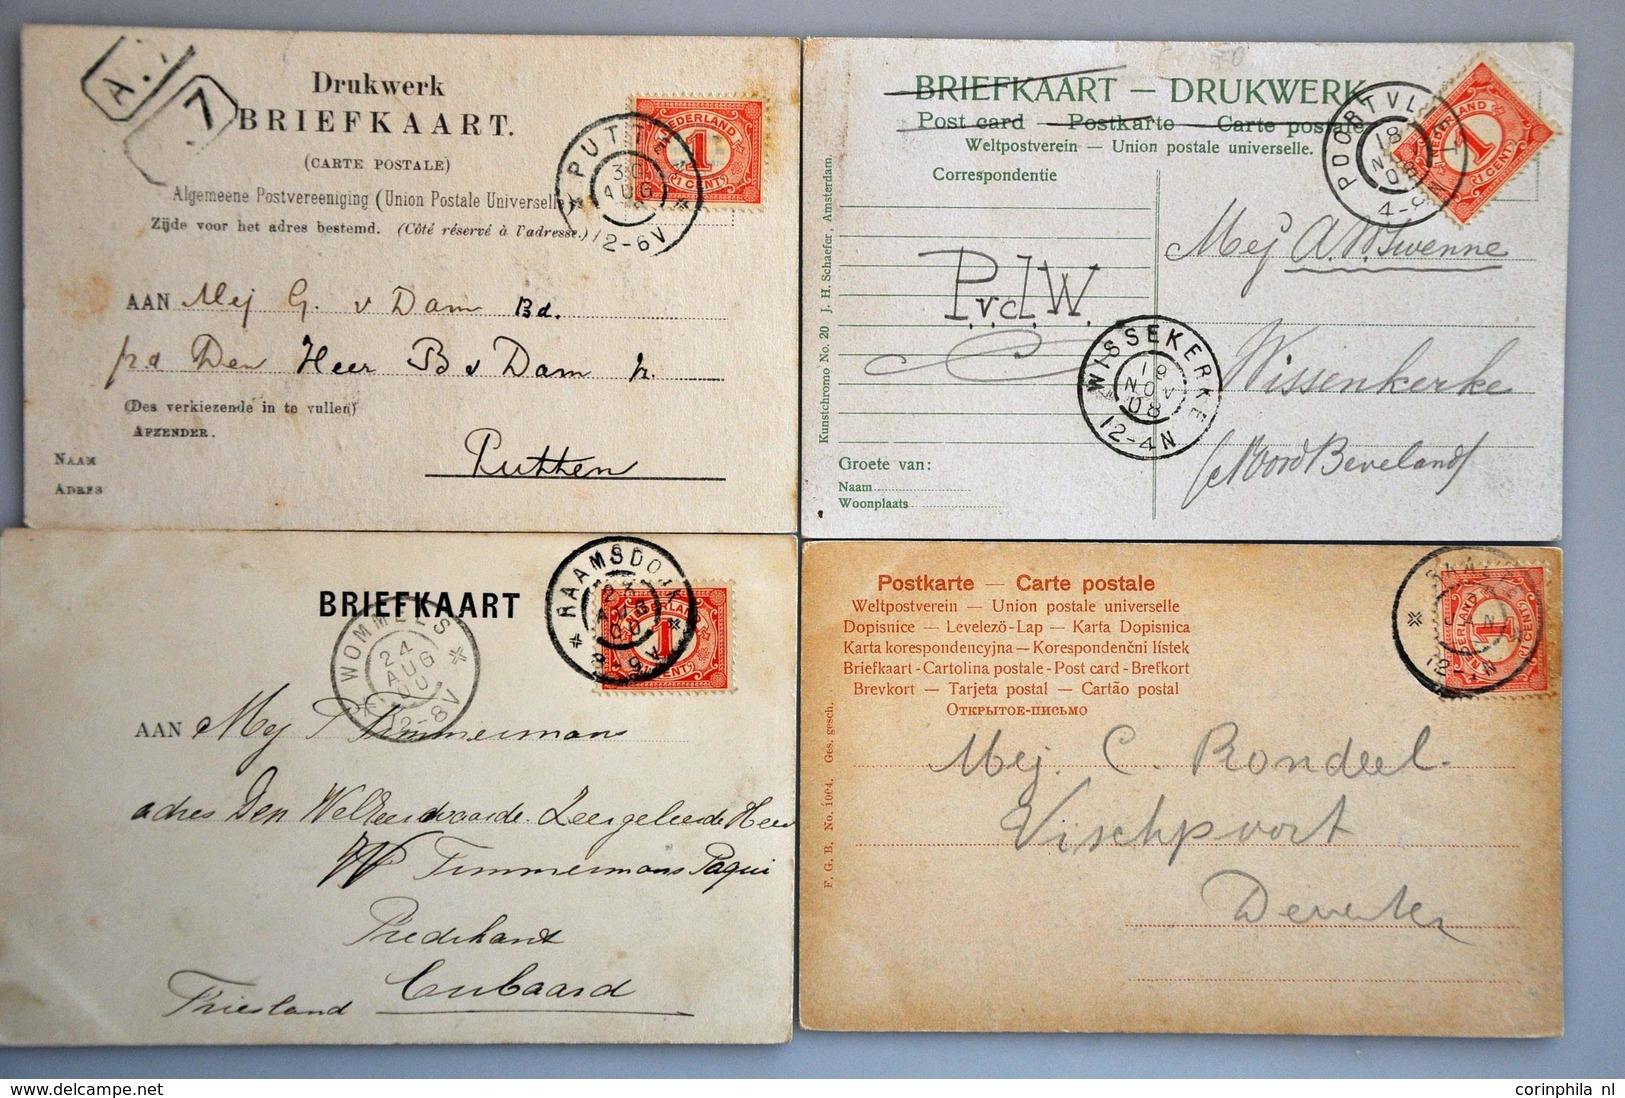 A.
7
Drukwerk
BRIEFKAART.
(CARTE POSTALE)
Algemeene Postvereeniging (Union Postale Universelle)
Zijde voor het adres bestemd. (Côté réservé à l'adresse.)
PUTTEN
30
AUG
12-6V
NEDERLAND
1
1 CENT
AAN Mej G. v Dam Bd.
p.a Den Heer B v Dam Jr.
(Des verkiezende in te vullen)
AFZENDER.
NAAM
ADRES
Putten
BRIEFKAART — DRUKWERK
Post card — Postkarte — Carte postale
Weltpostverein — Union postale universelle.
Correspondentie
POORTVL
18
NOV
08
4-8
NEDERLAND
1
1 CENT
Kunstchromo No. 20 J. H. Schaefer, Amsterdam.
P.v.d.W.
WISSEKERKE
19
NOV
08
12-4N
Mej A.
Wissenkerke
(Noord Beveland)
Groete van:
Naam
Woonplaats
BRIEFKAART
RAAMSDONK
23
AUG
00
NEDERLAND
1
1 CENT
WOMMELS
24
AUG
00
12-8V
AAN Mej T Timmermans
adres Den Weleerwaarde Zeergeleerde Heer
W Timmermans
Predikant
Cubaard
Friesland
Postkarte — Carte postale
Weltpostverein — Union postale universelle
Dopisnice — Levelező-Lap — Karta Dopisnica
Karta korespondencyjna — Korespondenční lístek
Briefkaart - Cartolina postale - Post card - Brefkort
Brevkort — Tarjeta postal — Cartão postal
Открытое-письмо
JAN
NEDERLAND
1
1 CENT
F. G. B. No. 1064. Ges. gesch.
Mej. C. Rondeel.
Vischpoort
Deventer
corinphila nl